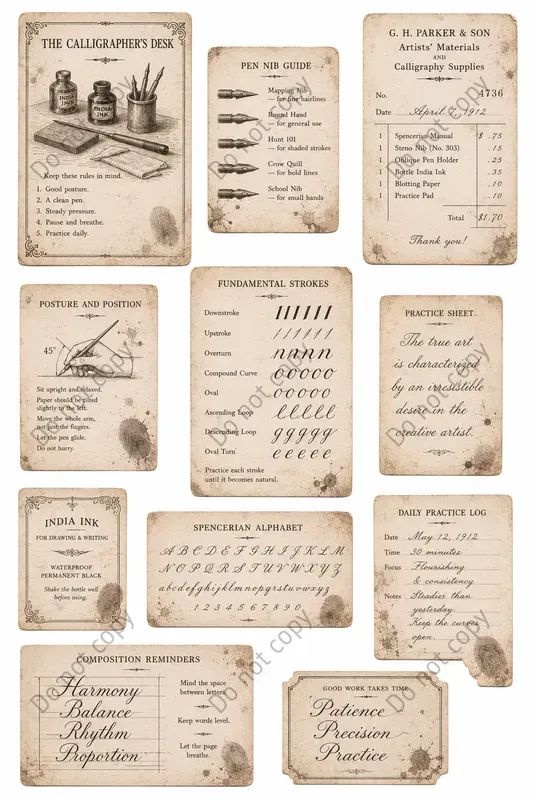 THE CALLIGRAPHER'S DESK
INDIA INK
INDIA INK
Keep these rules in mind.
1. Good posture.
2. A clean pen.
3. Steady pressure.
4. Pause and breathe.
5. Practice daily.
PEN NIB GUIDE
Mapping Nib
— for fine hairlines
Round Hand
— for general use
Hunt 101
— for shaded strokes
Crow Quill
— for bold lines
School Nib
— for small hands
G. H. PARKER & SON
Artists' Materials
AND
Calligraphy Supplies
No. 4736
Date April 7, 1912
1 Spencerian Manual $ .75
1 Steno Nib (No. 303) .15
1 Oblique Pen Holder .25
1 Bottle India Ink .35
1 Blotting Paper .10
1 Practice Pad .10
Total $1.70
Thank you!
POSTURE AND POSITION
45°
Sit upright and relaxed.
Paper should be tilted
slightly to the left.
Move the whole arm,
not just the fingers.
Let the pen glide.
Do not hurry.
FUNDAMENTAL STROKES
Downstroke
Upstroke
Overturn
Compound Curve
Oval
Ascending Loop
Descending Loop
Oval Turn
Practice each stroke
until it becomes natural.
PRACTICE SHEET
The true art
is characterized
by an irresistible
desire in the
creative artist.
INDIA INK
FOR DRAWING & WRITING
WATERPROOF
PERMANENT BLACK
Shake the bottle well
before using.
SPENCERIAN ALPHABET
A B C D E F G H I J K L M
N O P Q R S T U V W X Y Z
a b c d e f g h i j k l m n o p q r s t u v w x y z
1 2 3 4 5 6 7 8 9 0
DAILY PRACTICE LOG
Date May 12, 1912
Time 30 minutes
Focus Flourishing
& consistency
Notes Steadier than
yesterday.
Keep the curves
open.
COMPOSITION REMINDERS
Harmony
Balance
Rhythm
Proportion
Mind the space
between letters.
Keep words level.
Let the page
breathe.
GOOD WORK TAKES TIME
Patience
Precision
Practice
Do not copy
Do not copy
Do not copy
Do not copy
Do not copy
Do not copy
Do not copy
Do not copy
Do not copy
Do not copy
Do not copy
Do not copy